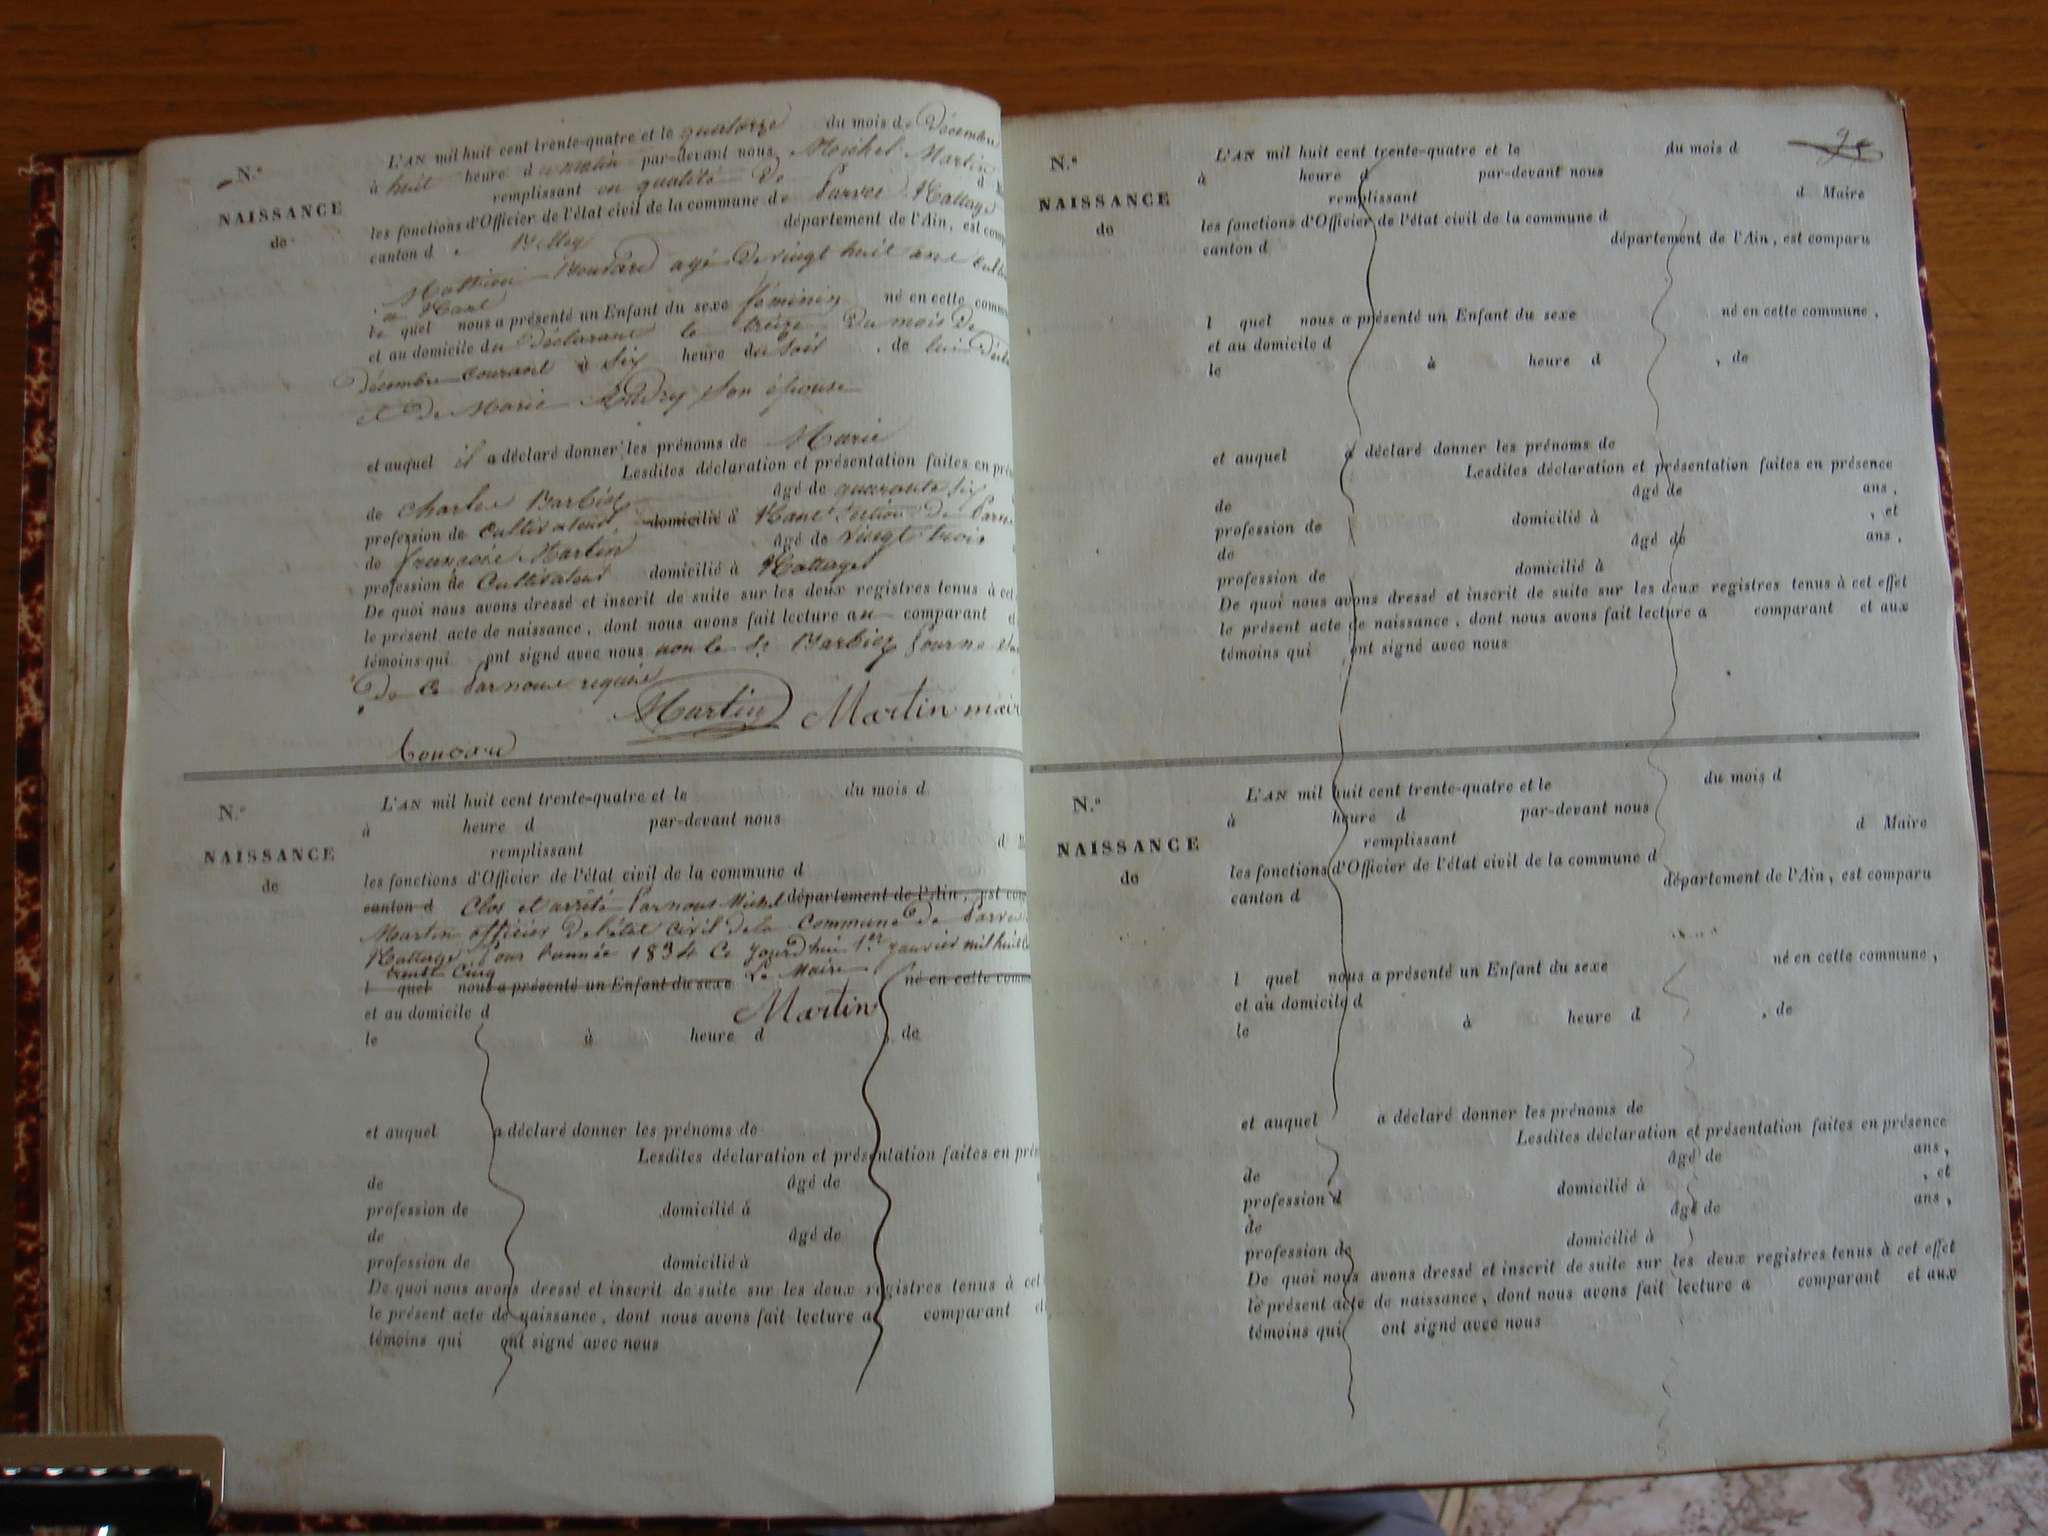 N.º
NAISSANCE
de
L'AN mil huit cent trente-quatre et le quatorze du mois de Décembre
à huit heure du matin par-devant nous Michel Martin
remplissant en qualité de
les fonctions d'Officier de l'état civil de la commune de Parves Nattage
canton d Belley département de l'Ain, est comp
Mathieu agé de vingt huit ans
à
le quel nous a présenté un Enfant du sexe féminin né en cette commu
et au domicile du Déclarant le treize du mois de
décembre courant à six heure du soir, de lui
et de Marie son épouse
et auquel il a déclaré donner les prénoms de Marie
Lesdites déclaration et présentation faites en pré
de Charles Barbier âgé de quarante six
profession de Cultivateur domicilié à section de
de françois Martin âgé de vingt trois
profession de Cultivateur domicilié à Nattages
De quoi nous avons dressé et inscrit de suite sur les deux registres tenus à cet
le présent acte de naissance, dont nous avons fait lecture au comparant e
témoins qui ont signé avec nous non le Sr Barbier
de ce par nous requis
Martin Martin mair
N.º
NAISSANCE
de
L'AN mil huit cent trente-quatre et le du mois d
à heure d par-devant nous
remplissant d M
les fonctions d'Officier de l'état civil de la commune d
canton d Clos et arrêté par nous Michel département de l'Ain, est com
Martin officier de l'état civil de la Commune de Parves
Nattage pour l'année 1834 Ce jourd'hui 1er janvier mil huit c
trente cinq Le Maire
l quel nous a présenté un Enfant du sexe né en cette comm
et au domicile d Martin
le à heure d , de
et auquel a déclaré donner les prénoms de
Lesdites déclaration et présentation faites en pré
de âgé de
profession de domicilié à
de âgé de
profession de domicilié à
De quoi nous avons dressé et inscrit de suite sur les deux registres tenus à cet
le présent acte de naissance, dont nous avons fait lecture a comparant e
témoins qui ont signé avec nous
N.º
NAISSANCE
de
L'AN mil huit cent trente-quatre et le du mois d
à heure d par-devant nous
remplissant d Maire
les fonctions d'Officier de l'état civil de la commune d
canton d département de l'Ain, est comparu
l quel nous a présenté un Enfant du sexe né en cette commune,
et au domicile d
le à heure d , de
et auquel a déclaré donner les prénoms de
Lesdites déclaration et présentation faites en présence
de âgé de ans,
profession de domicilié à , et
de âgé de ans,
profession de domicilié à
De quoi nous avons dressé et inscrit de suite sur les deux registres tenus à cet effet
le présent acte de naissance, dont nous avons fait lecture a comparant et aux
témoins qui ont signé avec nous
N.º
NAISSANCE
de
L'AN mil huit cent trente-quatre et le du mois d
à heure d par-devant nous
remplissant d Maire
les fonctions d'Officier de l'état civil de la commune d
canton d département de l'Ain, est comparu
l quel nous a présenté un Enfant du sexe né en cette commune,
et au domicile d
le à heure d , de
et auquel a déclaré donner les prénoms de
Lesdites déclaration et présentation faites en présence
de âgé de ans,
profession d domicilié à , et
de âgé de ans,
profession de domicilié à
De quoi nous avons dressé et inscrit de suite sur les deux registres tenus à cet effet
le présent acte de naissance, dont nous avons fait lecture a comparant et aux
témoins qui ont signé avec nous